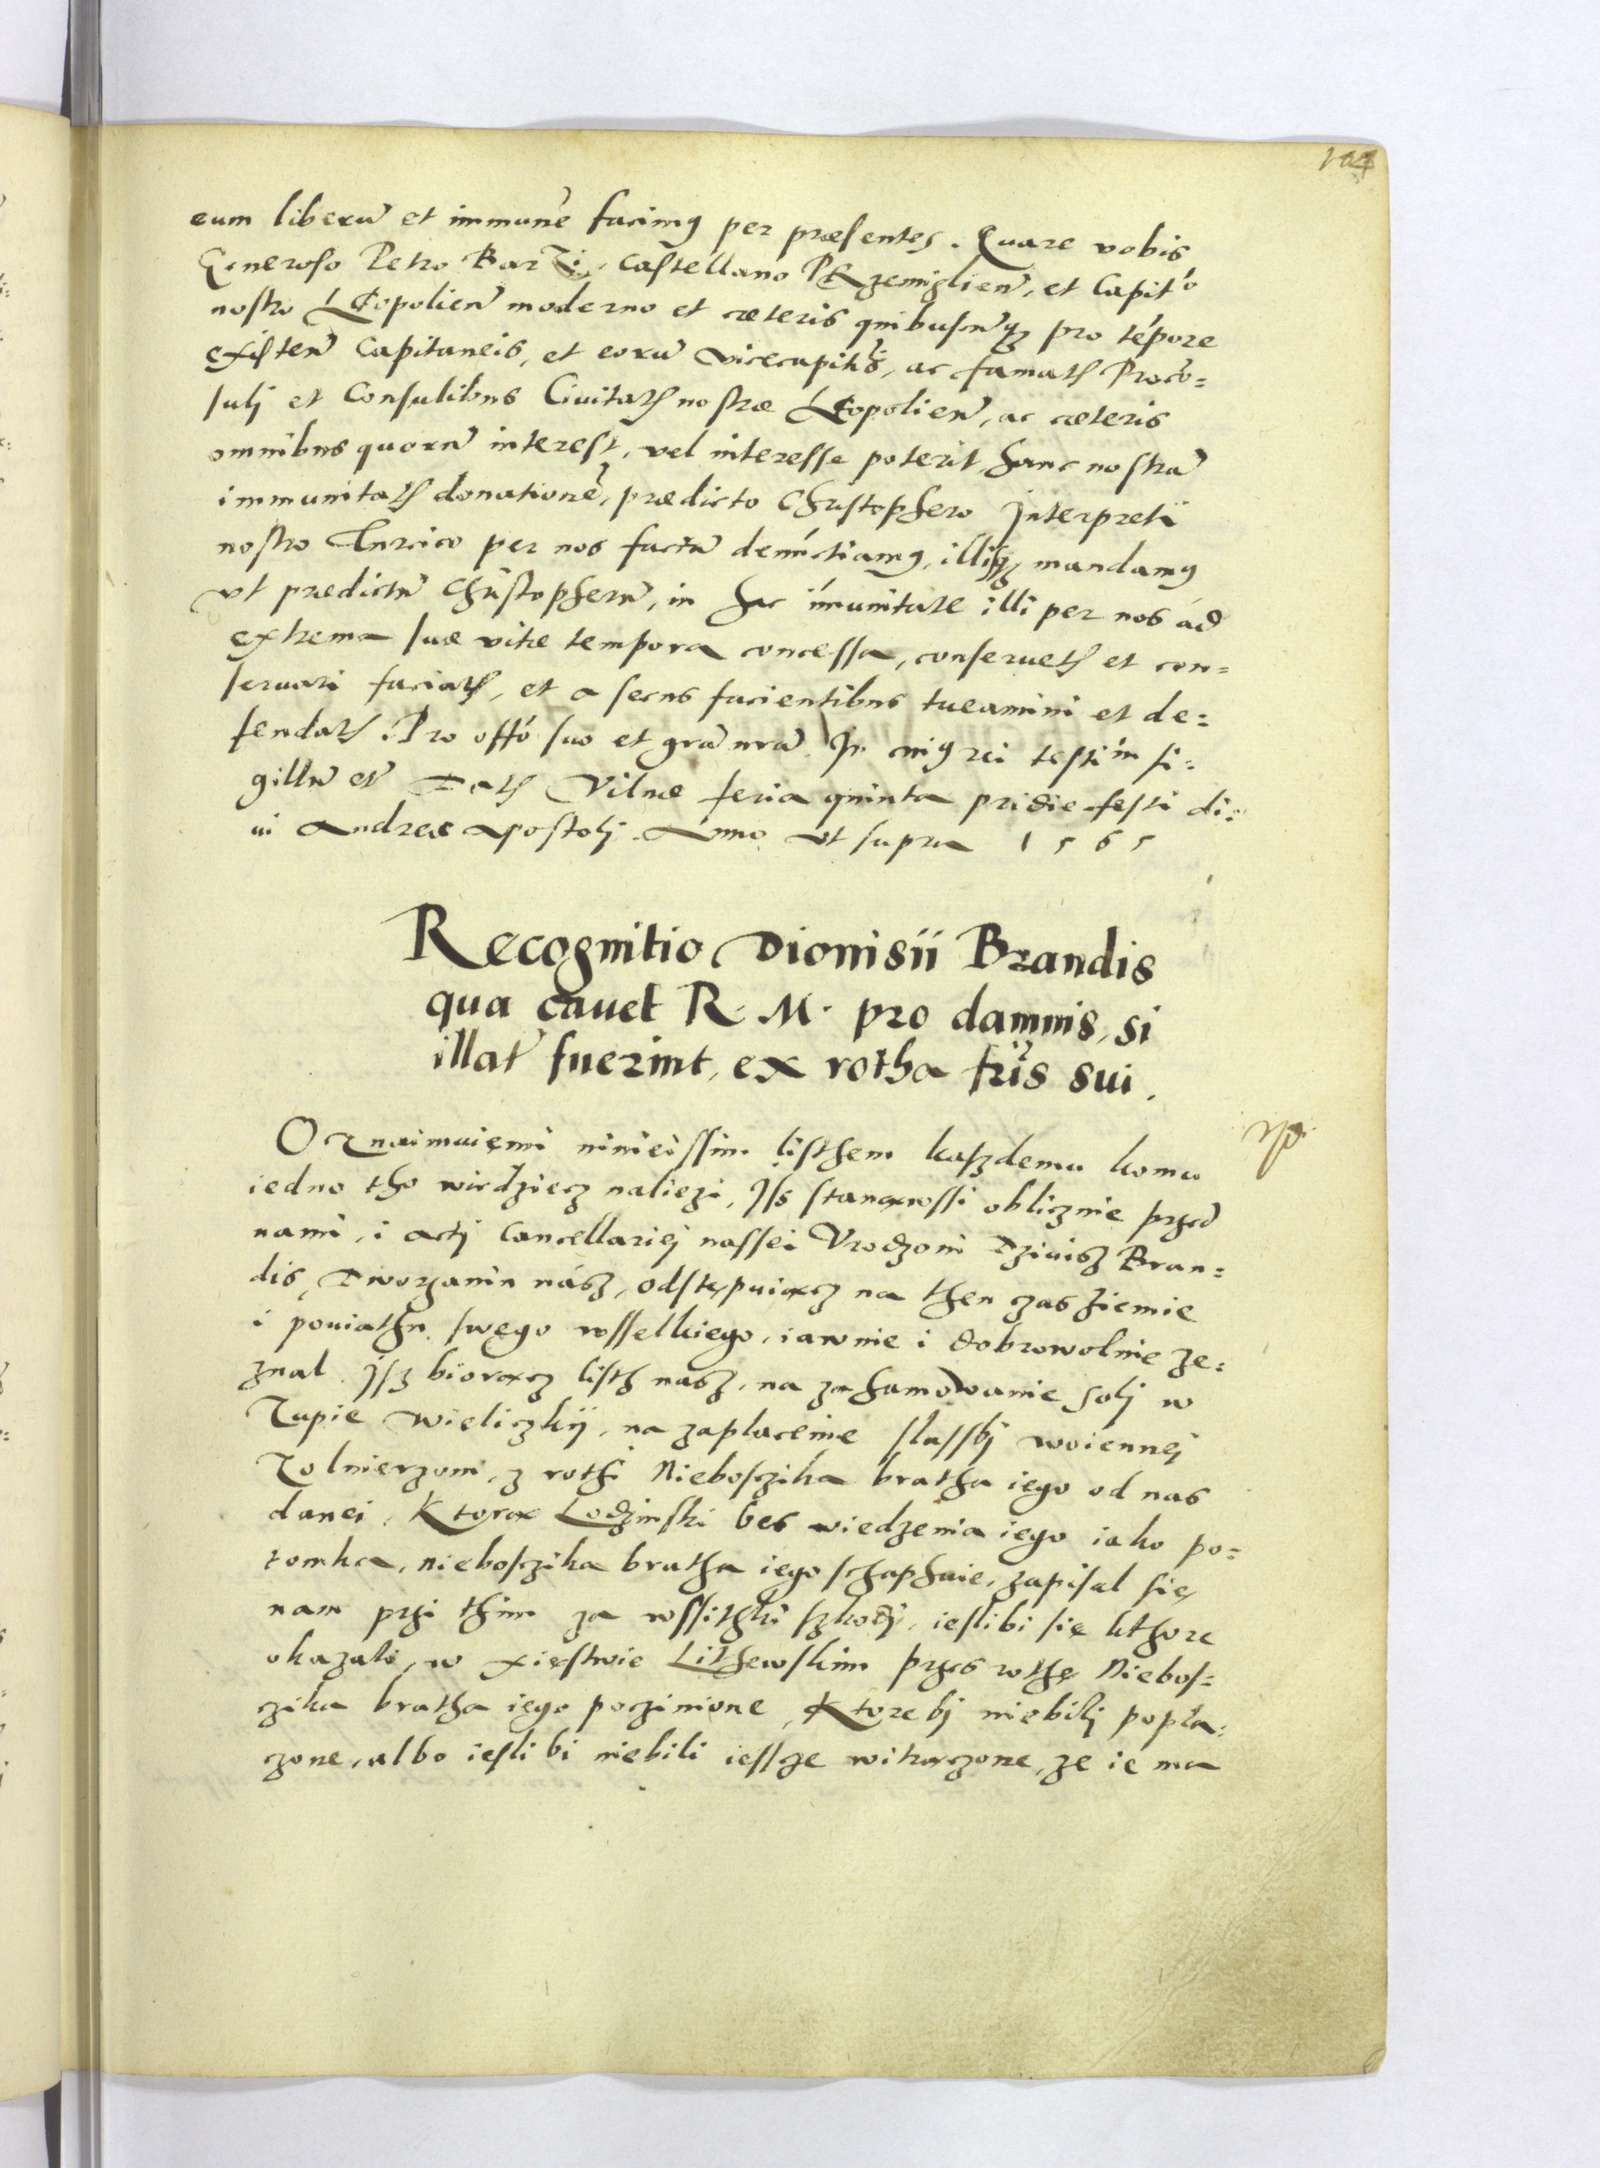 104
eum liberũ et immunẽ facimꝰ per præsentes. Quare vobis
Generoso Petro Barzi, Castellano PRzemislieñ, et Capitº
nostro LEopolieñ moderno et cæteris quibuscũqꝫ pro tẽpore
existeñ Capitaneis, et eorũ vicecapitīs, ac famatꝭ Procõ=
sulj et Consulibus Ciuitatꝭ nostræ LEopolieñ, ac cæteris
omnibus quorũ interest, vel interesse poterit, hanc nostrã
immunitatꝭ donationẽ, prædicto Christophero Interpreti
nostro Turcico per nos factã denũctiamꝰ, illisqꝫ mandamꝰ
vt prædictũ Christopherũ, in hac ĩmunitate illi per nos ad
extrema suæ vitæ tempora concessa, conseruetꝭ et con=
seruari faciatꝭ, et a secus facientibus tueamini et de=
fendatꝭ. Pro offõ suo et grã nrã. In cuiꝰ rei testiḿ si=
gillũ etc̃ Datꝭ Vilnæ feria quinta pridie festi di=
ui Andreæ Apostolj. Anno vt supra 1565
Recognitio Dionisii Brandis
qua cauet R. M. pro damnis, si
illat̃ fuerint, ex rotha fr̃is sui.
Oznaimuięmininieissim listhem kaszdemu komu
iedno tho wiedziecz naliezi, Iss stanąwssi oblicznie przed
nami, i actj Cancellariej nassei Vrodzoni Dziuisz Bran=
dis, Dworzanin nász, odstępuiącz na then czas ziemie
i pouiathu swęgo wsselkiego, iawnie i dobrowolnie ze=
znal. Jsz biorącz listh nasz, na zahamowanie solj w
Zupie wieliczkij, na zaplacenie slussbj woiennej
Zolnierzom, z rothi Nieboszczika bratha iego od nas
danei, Ktorą Lodzinski bes wiedzenia iego iako po=
tomka, nieboszczika bratha iego schaphuie, zapisal się
nam przi thim za wssithki szkodj, ieslibi się kthore
okazali, w xięstwie Lithewskim przes rothę Niebos=
zika bratha iego poczinione, Ktore bj niebilj popła=
czone, albo iesli bi niebili iessze witraczone, ze ie ma